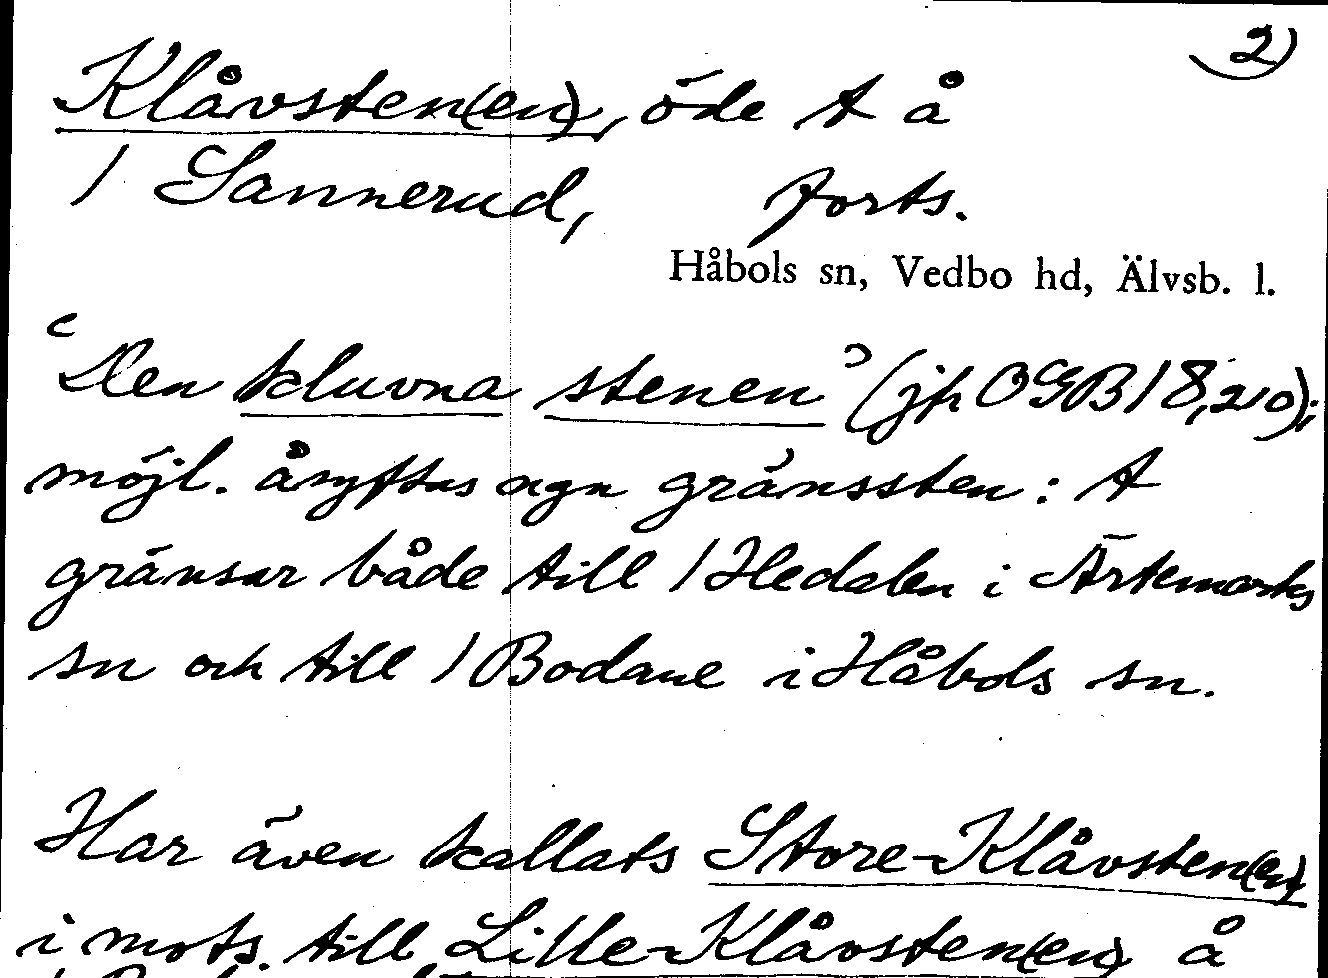 2)
Klåvsten(en), öde t å
1 Sannerud, forts.
Håbols sn, Vedbo hd, Älvsb. l.
'Den kluvna stenen' (jfr OGB 18,210);
möjl. åsyftas ngn gränssten: t
gränsar både till 1 Hedalen i Ärtemarks
sn och till 1 Bodane i Håbols sn.
Har även kallats Store-Klåvsten(en)
i mots. till Lille-Klåvsten(en) å